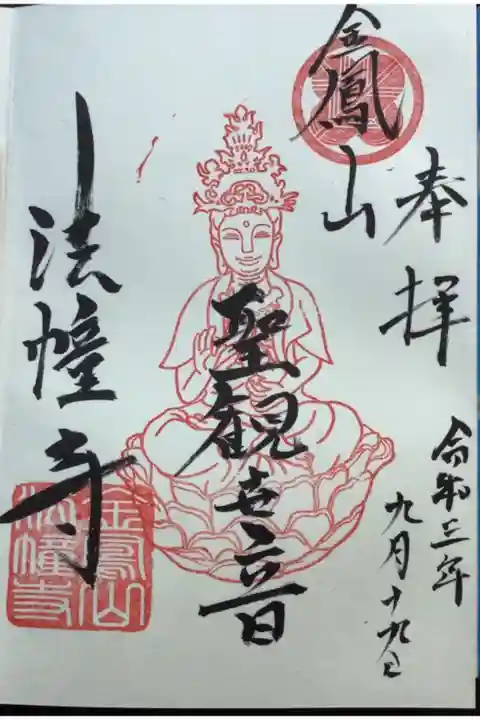 奉拝
令和三年
九月十九日
金鳳山
聖観世音
法幢寺
金鳳山
法幢寺